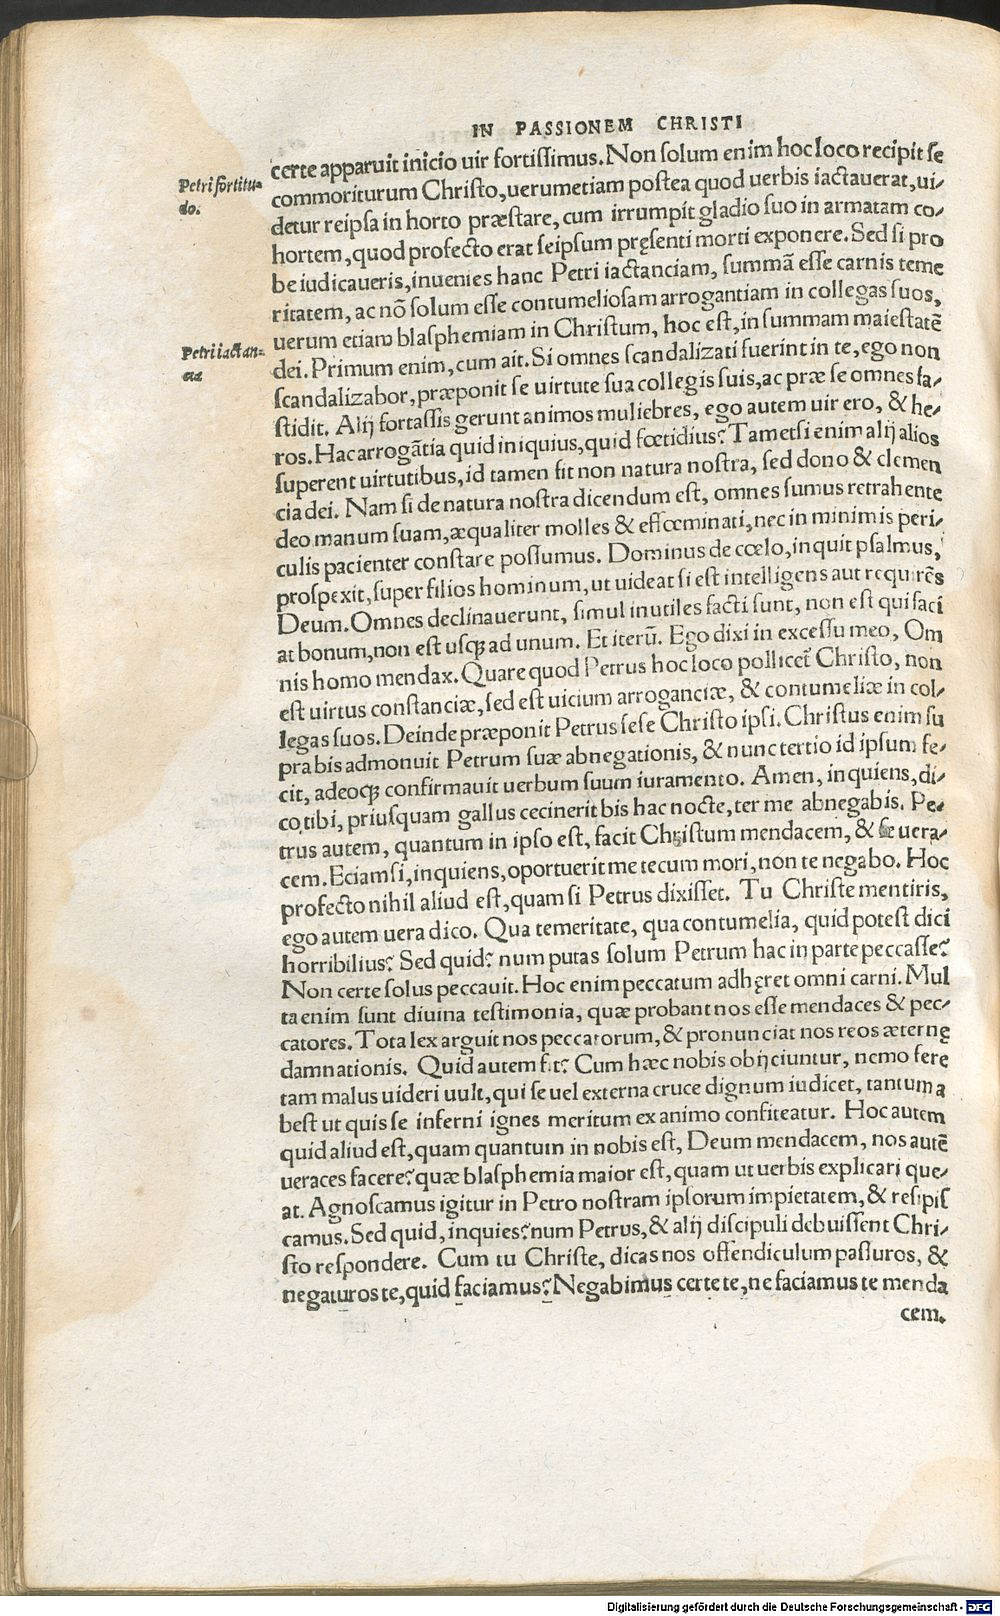 IN PASSIONEM CHRISTI
certe apparuit inicio uir fortiſſimus. Non ſolum enim hoc loco recipit ſe
Petri fortitu-
do.
commoriturum Chriſto, uerumetiam poſtea quod uerbis iactauerat, ui-
detur reipſa in horto præſtare, cum irrumpit gladio ſuo in armatam co-
hortem, quod profecto erat ſeipſum pręſenti morti exponere. Sed ſi pro
be iudicaueris, inuenies hanc Petri iactanciam, ſummã eſſe carnis teme
ritatem, ac nõ ſolum eſſe contumelioſam arrogantiam in collegas ſuos,
uerum etiam blaſphemiam in Chriſtum, hoc eſt, in ſummam maieſtatẽ
Petri iactan-
cia
dei. Primum enim, cum ait. Si omnes ſcandalizati fuerint in te, ego non
ſcandalizabor, præponit ſe uirtute ſua collegis ſuis, ac præ ſe omnes fa-
ſtidit. Alij fortaſſis gerunt animos muliebres, ego autem uir ero, & he-
ros. Hac arrogãtia quid iniquius, quid fœtidius? Tametſi enim alij alios
ſuperent uirtutibus, id tamen fit non natura noſtra, ſed dono & clemen
cia dei. Nam ſi de natura noſtra dicendum eſt, omnes ſumus retrahente
deo manum ſuam, æqualiter molles & effœminati, nec in minimis peri-
culis pacienter conſtare poſſumus. Dominus de cœlo, inquit pſalmus,
proſpexit, ſuper filios hominum, ut uideat ſi eſt intelligens aut requirẽs
Deum. Omnes declinauerunt, ſimul inutiles facti ſunt, non eſt qui faci
at bonum, non eſt uſq; ad unum. Et iterũ. Ego dixi in exceſſu meo, Om
nis homo mendax. Quare quod Petrus hoc loco pollicet᷑ Chriſto, non
eſt uirtus conſtanciæ, ſed eſt uicium arroganciæ, & contumeliæ in col-
legas ſuos. Deinde præponit Petrus ſeſe Chriſto ipſi. Chriſtus enim ſu
pra bis admonuit Petrum ſuæ abnegationis, & nunc tertio id ipſum fe-
cit, adeoq; confirmauit uerbum ſuum iuramento. Amen, inquiens, di-
co tibi, priuſquam gallus cecinerit bis hac nocte, ter me abnegabis. Pe-
trus autem, quantum in ipſo eſt, facit Chriſtum mendacem, & ſe uera-
cem. Eciamſi, inquiens, oportuerit me tecum mori, non te negabo. Hoc
profecto nihil aliud eſt, quam ſi Petrus dixiſſet. Tu Chriſte mentiris,
ego autem uera dico. Qua temeritate, qua contumelia, quid poteſt dici
horribilius? Sed quid? num putas ſolum Petrum hac in parte peccaſſe?
Non certe ſolus peccauit. Hoc enim peccatum adhęret omni carni. Mul
ta enim ſunt diuina teſtimonia, quæ probant nos eſſe mendaces & pec-
catores. Tota lex arguit nos peccatorum, & pronunciat nos reos æternę
damnationis. Quid autem fit? Cum hæc nobis obijciuntur, nemo fere
tam malus uideri uult, qui ſe uel externa cruce dignum iudicet, tantum a
beſt ut quis ſe inferni ignes meritum ex animo confiteatur. Hoc autem
quid aliud eſt, quam quantum in nobis eſt, Deum mendacem, nos autẽ
ueraces facere? quæ blaſphemia maior eſt, quam ut uerbis explicari que-
at. Agnoſcamus igitur in Petro noſtram ipſorum impietatem, & reſipiſ
camus. Sed quid, inquies? num Petrus, & alij diſcipuli debuiſſent Chri-
ſto reſpondere. Cum tu Chriſte, dicas nos offendiculum paſſuros, &
negaturos te, quid faciamus? Negabimus certe te, ne faciamus te menda
cem.
Digitalisierung gefördert durch die Deutsche Forschungsgemeinschaft - DFG